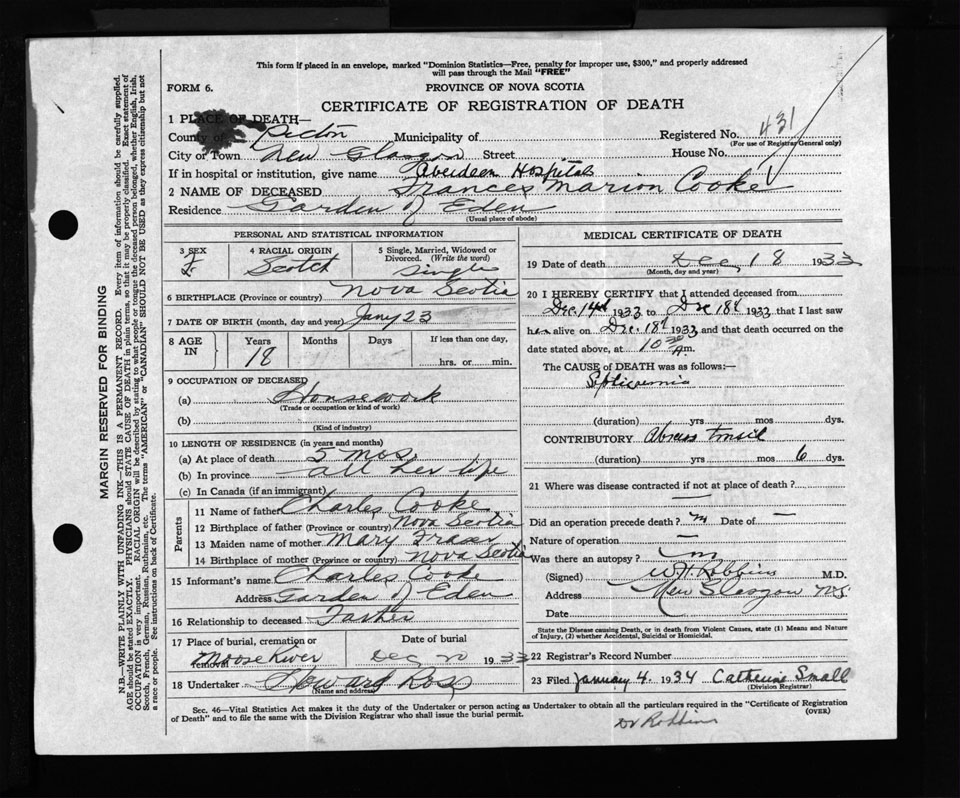 This form if placed in an envelope, marked "Dominion Statistics—Free, penalty for improper use, $300," and properly addressed
will pass through the Mail "FREE"
FORM 6.
PROVINCE OF NOVA SCOTIA
CERTIFICATE OF REGISTRATION OF DEATH
1 PLACE OF DEATH—
County of Pictou Municipality of Registered No. 431
(For use of Registrar General only)
City or Town New Glasgow Street House No.
If in hospital or institution, give name Aberdeen Hospital
2 NAME OF DECEASED Frances Marion Cooke
Residence Garden of Eden
(Usual place of abode)
PERSONAL AND STATISTICAL INFORMATION
3 SEX 4 RACIAL ORIGIN 5 Single, Married, Widowed or
Divorced. (Write the word)
F Scotch Single
6 BIRTHPLACE (Province or country) Nova Scotia
7 DATE OF BIRTH (month, day and year) Jany 23
8 AGE IN Years Months Days If less than one day,
18 hrs. or min.
9 OCCUPATION OF DECEASED
(a) Housework
(Trade or occupation or kind of work)
(b)
(Kind of industry)
10 LENGTH OF RESIDENCE (in years and months)
(a) At place of death 5 mos
(b) In province all her life
(c) In Canada (if an immigrant)
Parents
11 Name of father Charles Cooke
12 Birthplace of father (Province or country) Nova Scotia
13 Maiden name of mother Mary Fraser
14 Birthplace of mother (Province or country) Nova Scotia
15 Informant's name Charles Cooke
Address Garden of Eden
16 Relationship to deceased Father
17 Place of burial, cremation or removal Moose River
Date of burial Dec 20 1933
18 Undertaker Howard Ross
(Name and address)
MEDICAL CERTIFICATE OF DEATH
19 Date of death Dec, 18 1933
(Month, day and year)
20 I HEREBY CERTIFY that I attended deceased from
Dec. 14th 1933 to Dec 18th 1933 that I last saw
her alive on Dec. 18th 1933 and that death occurred on the
date stated above, at 10 30 A m.
The CAUSE of DEATH was as follows:—
Septicaemia
(duration) yrs mos dys.
CONTRIBUTORY Abscess Tonsil
(duration) yrs mos 6 dys.
21 Where was disease contracted if not at place of death?
—
Did an operation precede death? no Date of —
Nature of operation —
Was there an autopsy? no
(Signed) Robbins M.D.
Address New Glasgow N.S.
Date
State the Disease causing Death, or in death from Violent Causes, state (1) Means and Nature
of Injury, (2) whether Accidental, Suicidal or Homicidal.
22 Registrar's Record Number
23 Filed January 4. 1934 Catherine Small
(Division Registrar)
Sec. 46—Vital Statistics Act makes it the duty of the Undertaker or person acting as Undertaker to obtain all the particulars required in the "Certificate of Registration
of Death" and to file the same with the Division Registrar who shall issue the burial permit.
(OVER)
Dr Robbins
MARGIN RESERVED FOR BINDING
N.B.—WRITE PLAINLY WITH UNFADING INK—THIS IS A PERMANENT RECORD. Every item of information should be carefully supplied.
AGE should be stated EXACTLY. PHYSICIANS should STATE CAUSE OF DEATH in plain terms, so that it may be properly classified. Exact statement of
OCCUPATION is very important. RACIAL ORIGIN will be described by stating to what people or tongue the deceased person belonged, whether English, Irish,
Scotch, French, German, Russian, Ruthenian, etc. The terms "AMERICAN" or "CANADIAN" SHOULD NOT BE USED as they express citizenship but not
a race or people. See instructions on back of Certificate.